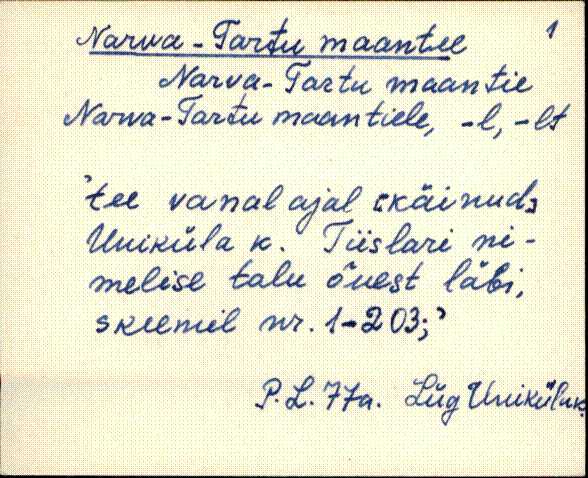 1
Narva-Tartu maantee
Narva-Tartu maantie
Narva-Tartu maantiele, -l, -lt
'tee vanal ajal [käinud]
Uniküla k. Tiislari ni-
melise talu õuest läbi,
skeemil nr. 1-203;'
P.L. 77a. Lüg Uniküla k.